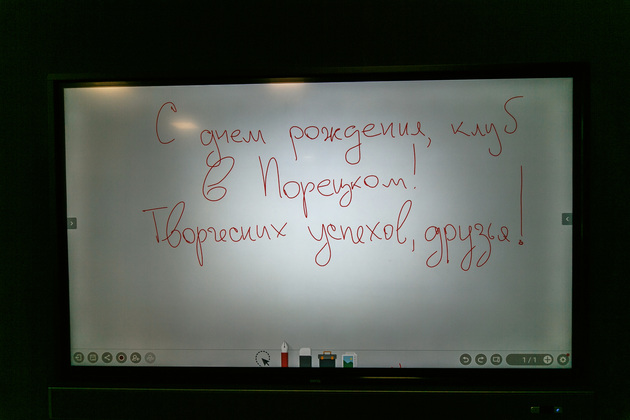 С днем рождения, клуб
в Порецком!
Творческих успехов, друзья!
1/1